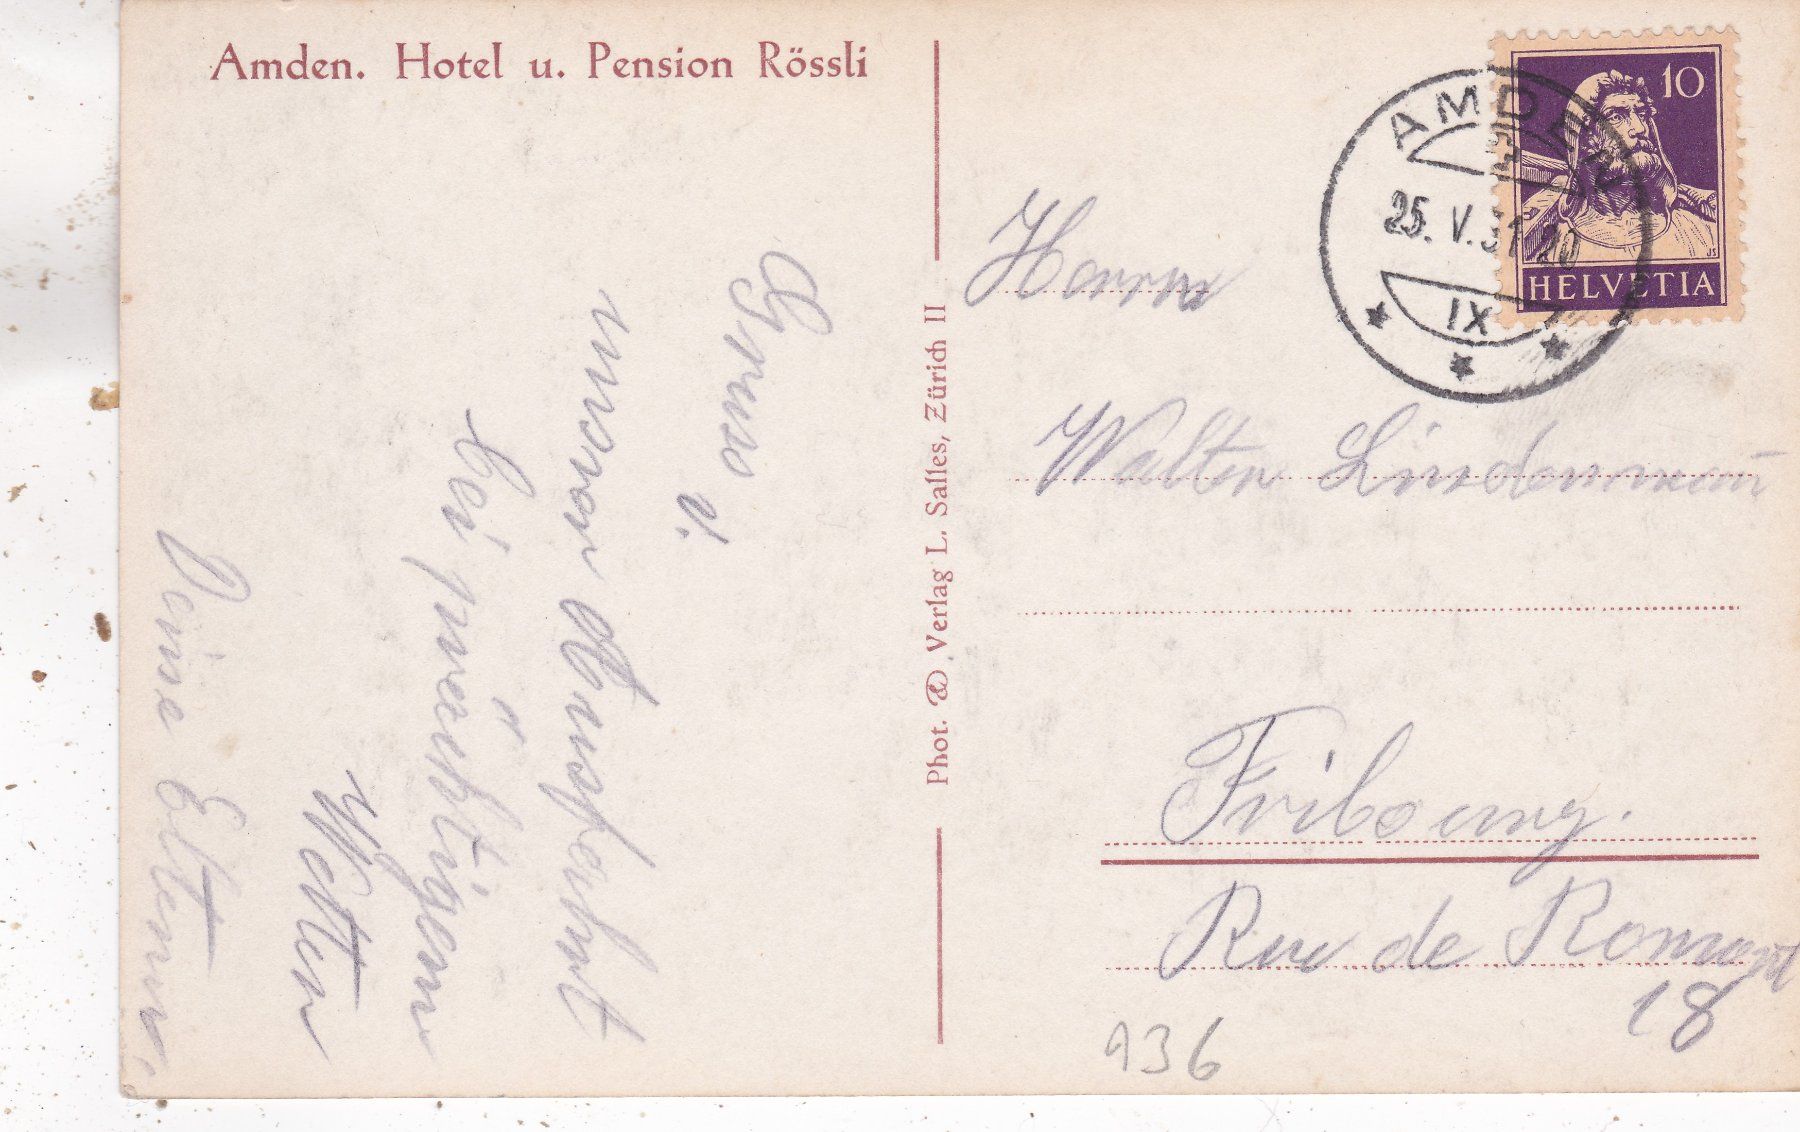 Amden. Hotel u. Pension Rössli
Gruss v.
unserer Ausfahrt
bei prächtigem
Wetter
Deine Eltern.
Phot. Verlag L. Salles, Zürich II
10
HELVETIA
AMDEN
25. V. 31. 20
IX
Herrn
Walter Lindenmann
Fribourg.
Rue de Romont
18
936